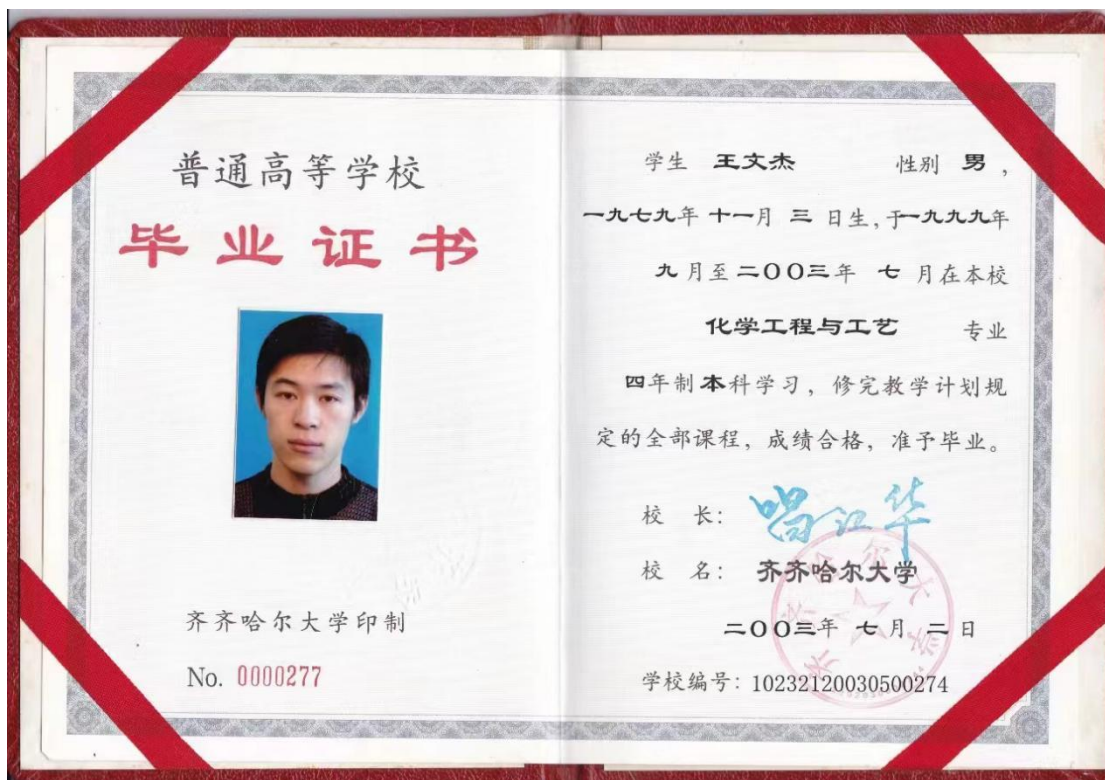 普通高等学校
毕业证书
齐齐哈尔大学印制
No. 0000277
学生 王文杰 性别 男，
一九七九年 十一月 三 日生，于一九九九年
九 月至 二〇〇三年 七 月在本校
化学工程与工艺 专业
四年制本科学习，修完教学计划规
定的全部课程，成绩合格，准予毕业。
校 长：
校 名： 齐齐哈尔大学
二〇〇三年 七 月 二 日
学校编号：10232120030500274